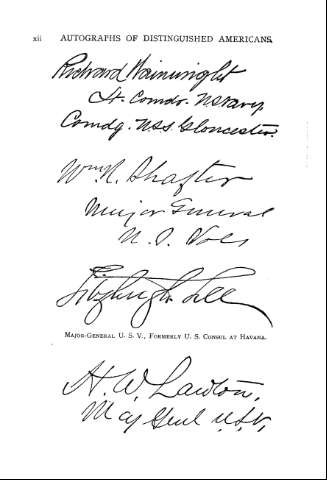 xii AUTOGRAPHS OF DISTINGUISHED AMERICANS.
Richard Wainwright
Lt. Comdr. U.S. Navy,
Comdg. U.S.S. Gloucester.
Wm. R. Shafter
Major General
U. S. Vols
Fitzhugh Lee
MAJOR-GENERAL U. S. V., FORMERLY U. S. CONSUL AT HAVANA.
H. W. Lawton,
Maj Genl U.S.V.